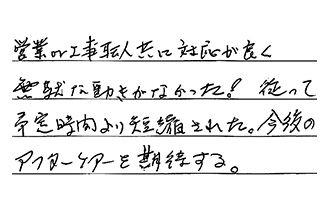 営業or工事転人共に対応が良く
無駄な動きがなかった! 従って
予定時間より短縮された。今後の
アフターケアーを期待する。